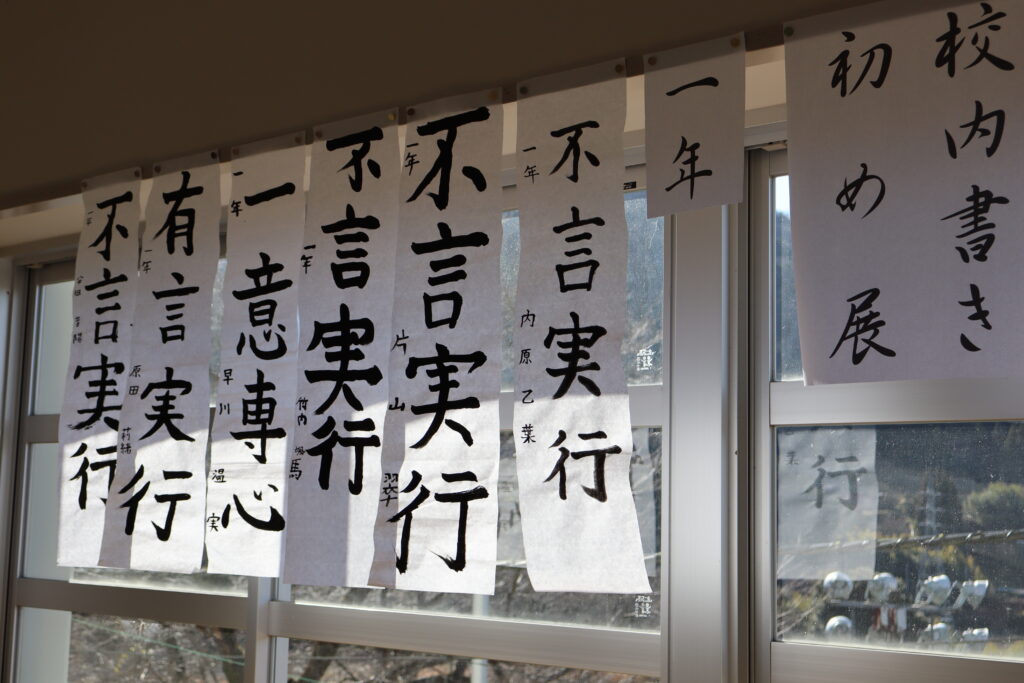 校内書き
初め展
一年
不言実行
一年 内原乙葉
不言実行
一年 片山翠
不言実行
一年 竹内 馬
一意専心
一年 早川温実
有言実行
一年 原田
不言実行
一年 谷田
行
葉